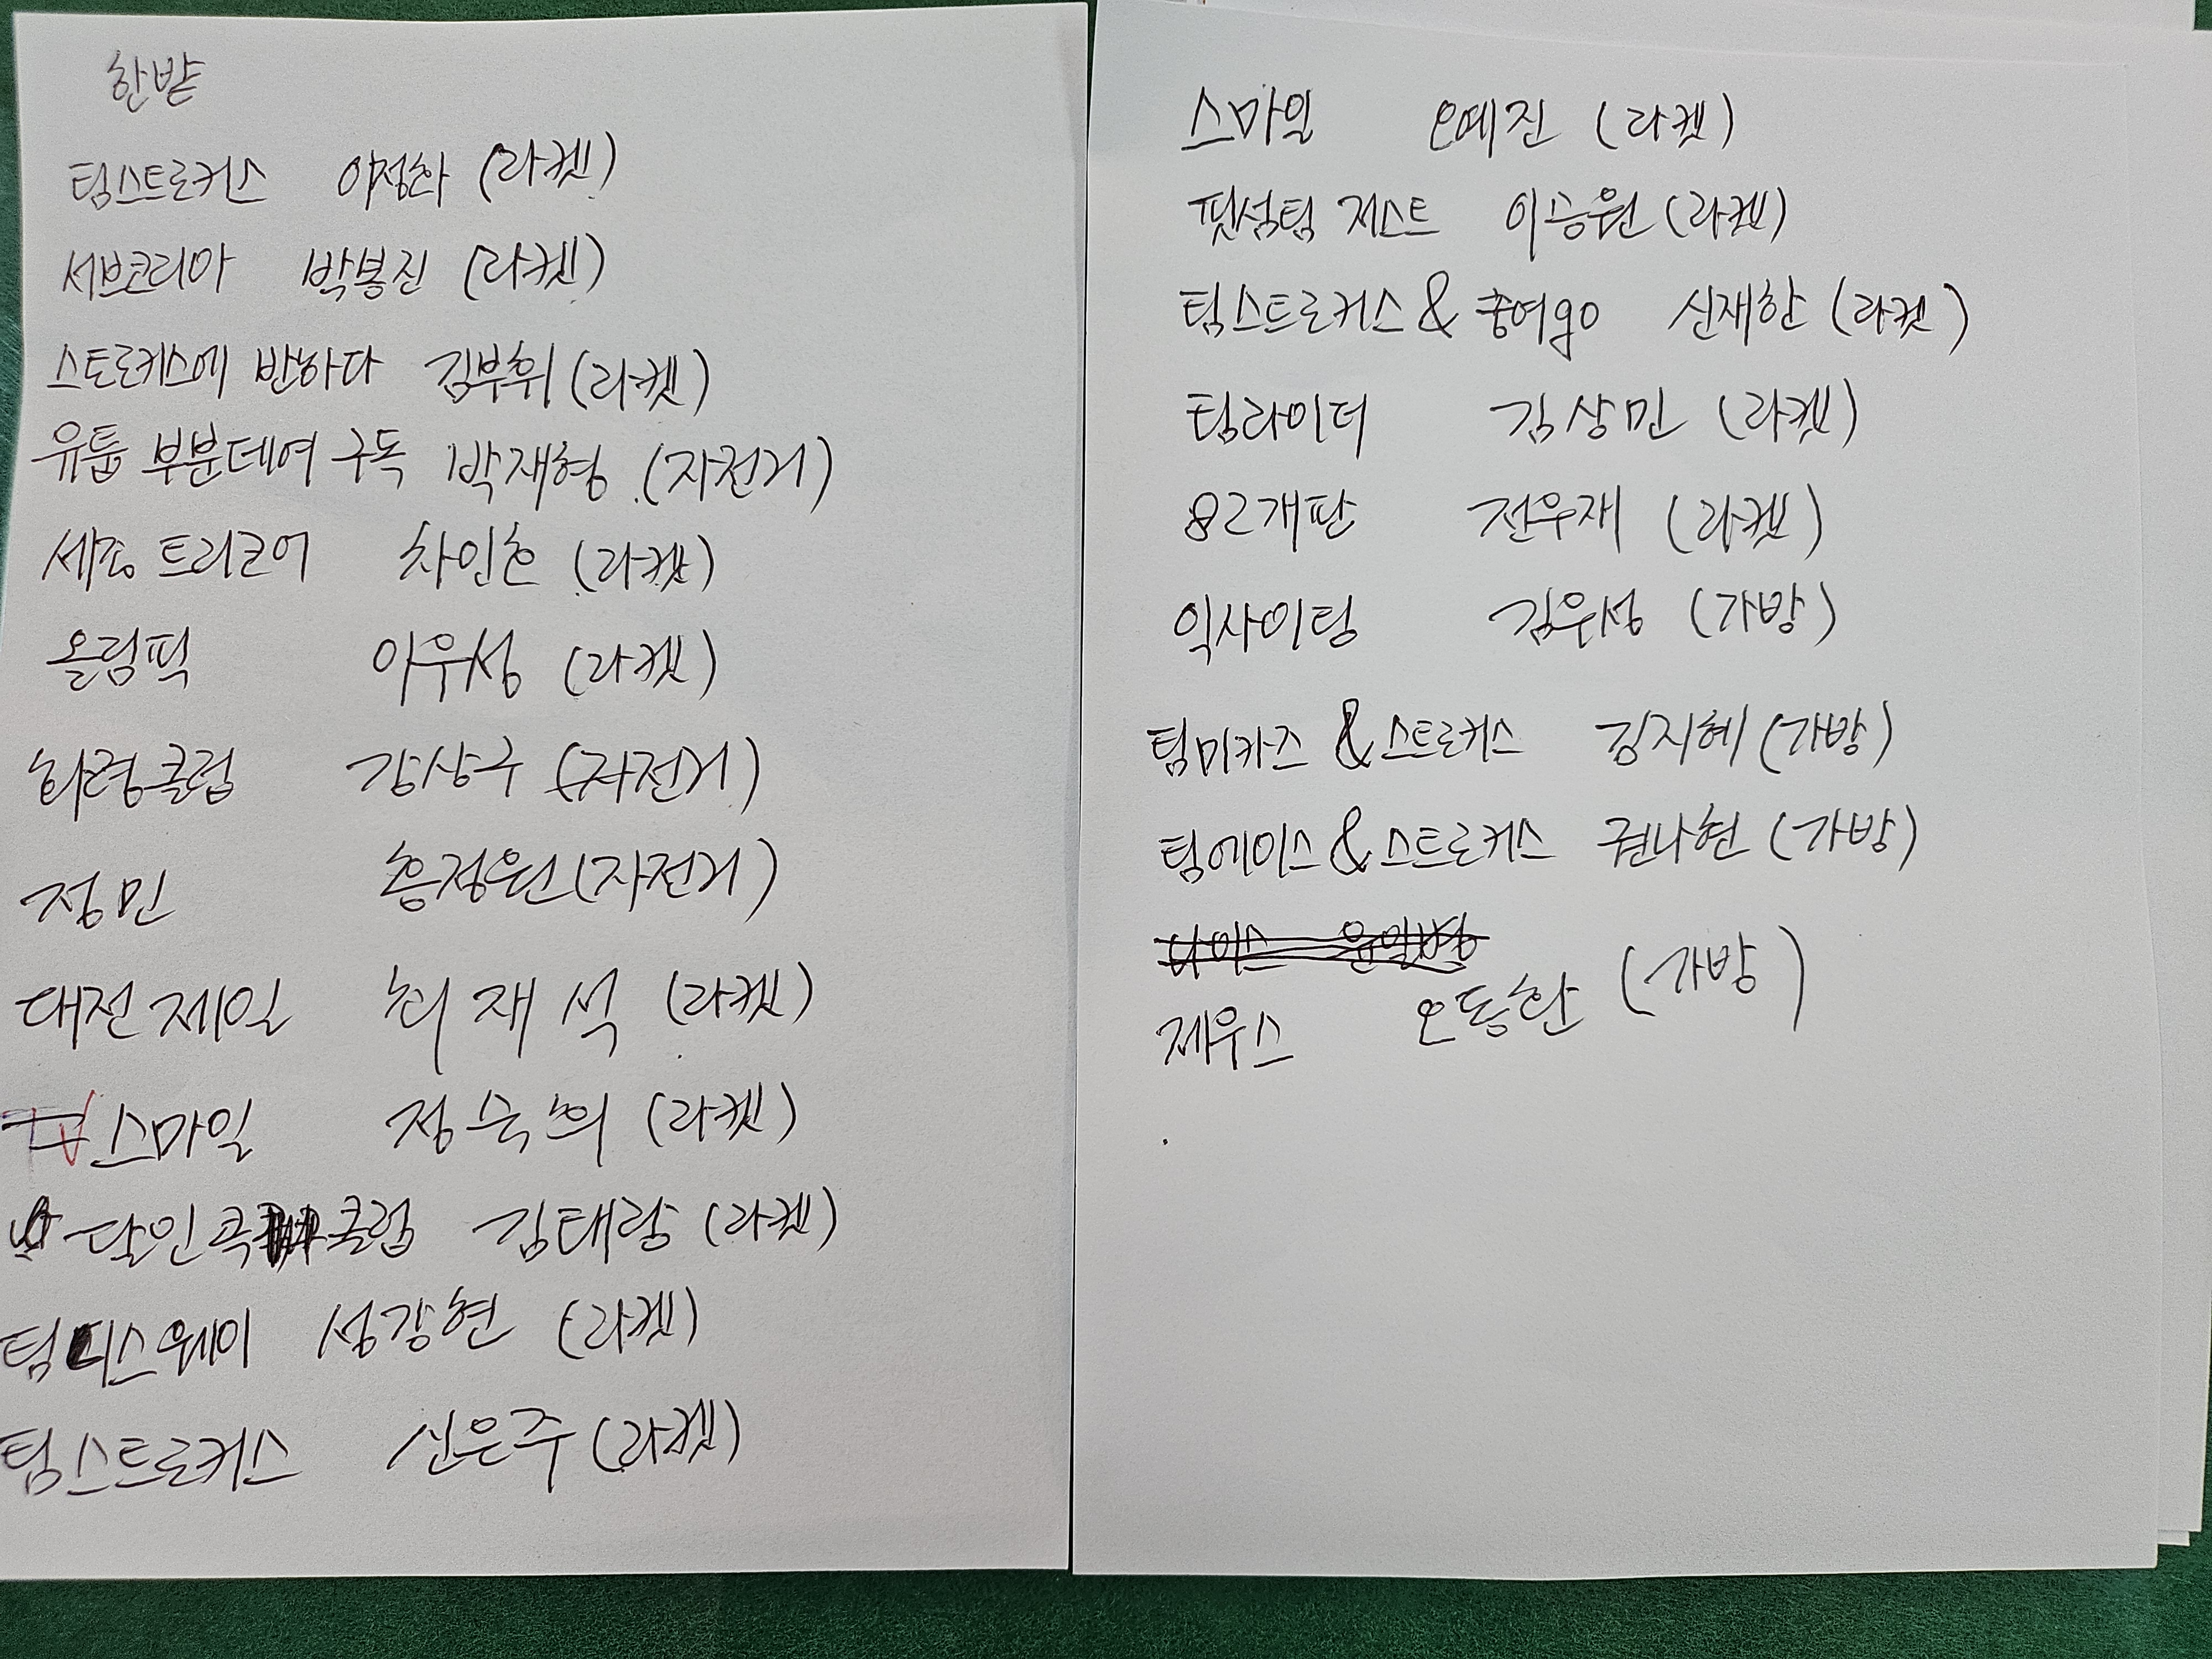 한밭
팀스트로커스 이정화 (라켓)
서브코리아 박봉진 (라켓)
스트로커스에 반하다 김부휘 (라켓)
유튭 부분데여 구독 박재형 (자전거)
세종 트리코어 차인호 (라켓)
올림픽 이우성 (라켓)
화령클럽 강상구 (자전거)
정민 홍정원 (자전거)
대전제일 최재석 (라켓)
스마일 정숙희 (라켓)
달인콕 클럽 김태랑 (라켓)
팀디스웨이 성강현 (라켓)
팀스트로커스 신은주 (라켓)
스마일 오예진 (라켓)
핏섬팀 제스트 이승원 (라켓)
팀스트로커스 & 충여go 신재한 (라켓)
팀라이더 김상민 (라켓)
82개판 전우재 (라켓)
익사이팅 김우성 (가방)
팀미카즈 & 스트로커스 김지혜 (가방)
팀에이스 & 스트로커스 권나현 (가방)
제우스 오동한 (가방)